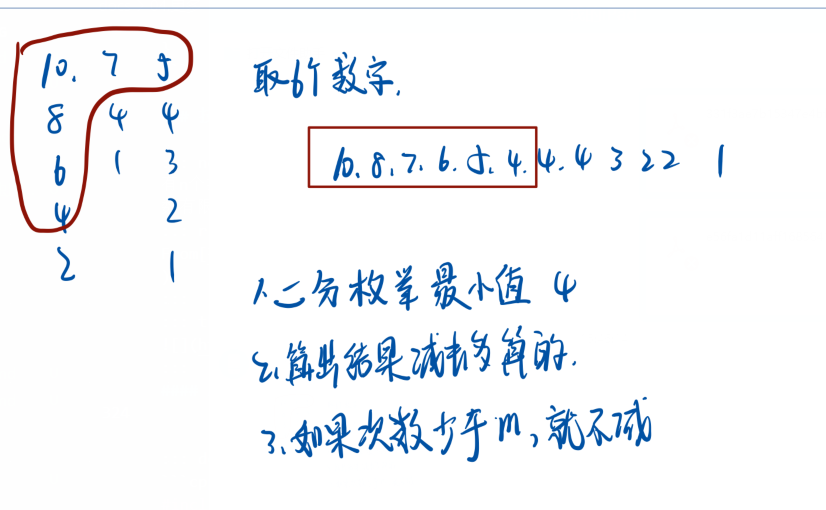 10. 7 5
8 4 4
6 1 3
4 2
2 1
取6个数字.
10.8.7.6.5.4.4.4 3 2 2 1
1.二分枚举最小值 4
2.算出结果减去多算的.
3.如果次数少于m,就不减